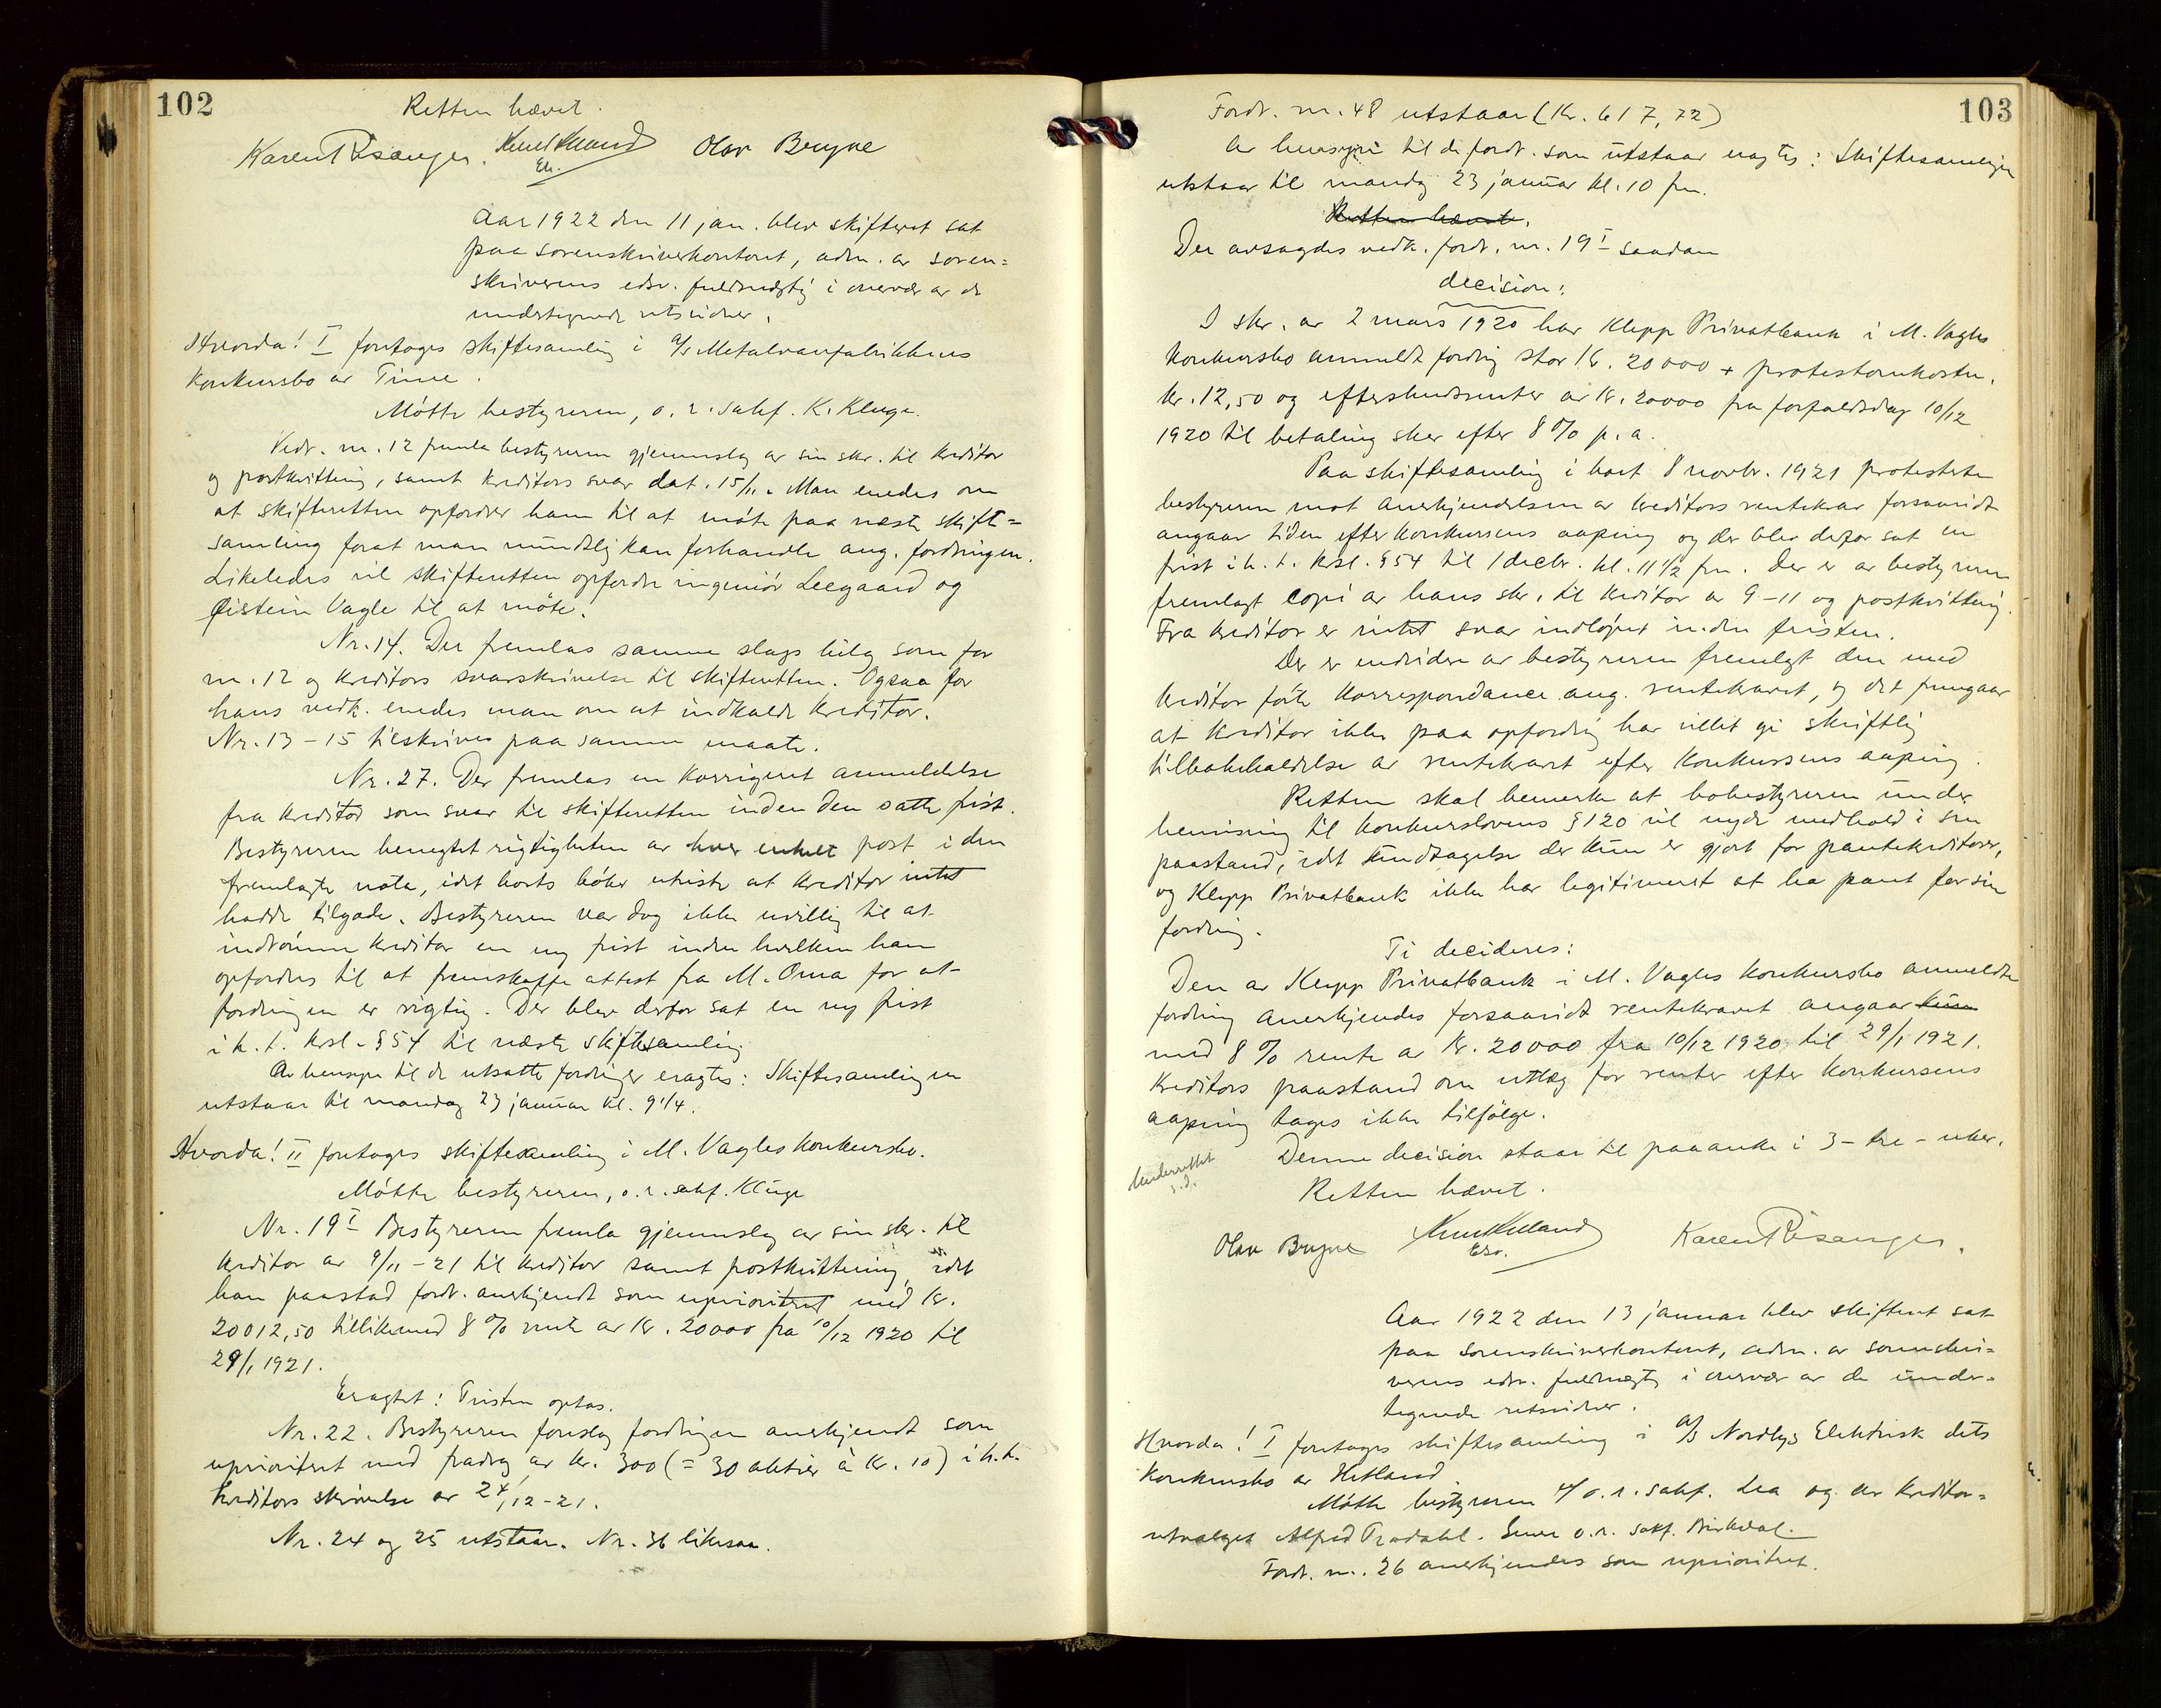 102
Retten hævet.
Karen Risanger. Olav Bryne
Aar 1922 den 11 jan. blev skifteret sat
paa sorenskriverkontoret, adm. av soren=
skriverens edsv. fuldmægtig i overvær av de
undertegnede retsvidner.
Hvorda! I foretoges skiftesamling i A/s Metalvarefabrikkens
konkursbo av Time.
Møtte bestyreren, o.r.sakf. K. Kluge.
Vedr. nr. 12 fremla bestyreren gjennemslag av sin skr. til kreditor
og postkvittering, samt kreditors svar dat. 15/11. Man enedes om
at skifteretten opfordrer ham til at møte paa næste skifte=
samling forat man mundtlig kan forhandle ang. fordringen.
Likeledes vil skifteretten opfordre ingeniør Leegaard og
Øistein Vagle til at møte.
Nr. 14. Der fremlas samme slags bilag som for
nr. 12 og kreditors svarskrivelse til skifteretten. Ogsaa for
hans vedk. enedes man om at indkalde kreditor.
Nr. 13 - 15 tilskrives paa samme maate.
Nr. 27. Der fremlas en korrigeret anmeldelse
fra kreditor som svar til skifteretten inden den satte frist.
Bestyreren benegtet rigtigheten av hver enkelt post i den
fremlagte nota, idet boets bøker utviste at kreditor intet
hadde tilgode. Bestyreren var dog ikke uvillig til at
indrømme kreditor en ny frist inden hvilken han
opfordres til at fremskaffe attest fra M. Oma for at
fordringen er rigtig. Der blev derfor sat en ny frist
i h. t. ksl. § 54 til næste skiftesamling
Av hensyn til de utsatte fordringer eragtes: Skiftesamlingen
utstaar til mandag 23 januar kl. 9 1/4.
Hvorda! II foretoges skiftesamling i M. Vagles konkursbo.
Møtte bestyreren, o.r.sakf. Kluge
Nr. 19 I Bestyreren fremla gjennemslag av sin skr. til
kreditor av 9/11 - 21 til kreditor samt postkvittering, idet
han paastod fordr. anerkjendt som uprioritert med kr.
20012,50 tillikemed 8 % rente av kr. 20000 fra 10/12 1920 til
29/1 1921.
Eragtet: Fristen optas.
Nr. 22. Bestyreren foreslog fordringen anerkjendt som
uprioritert med fradrag av kr. 300 (= 30 aktier à kr. 10) i h.t.
kreditors skrivelse av 24/12 - 21.
Nr. 24 og 25 utstaar. Nr. 36 likesaa.
103
Fordr. nr. 48 utstaar (kr. 617,72)
Av hensyn til de fordr. som utstaar eragtes: Skiftesamlingen
utstaar til mandag 23 januar kl. 10 fm.
Retten hævet.
Der avsagdes vedk. fordr. nr. 19 I saadan
decision:
I skr. av 2 mars 1920 har Klepp Privatbank i M. Vagles
konkursbo anmeldt fordring stor kr. 20000 + protestomkostn.
kr. 12,50 og efterskudsrenter av kr. 20000 fra forfaldsdag 10/12
1920 til betaling sker efter 8 % p. a.
Paa skiftesamling i boet 8 novbr. 1921 protesterte
bestyreren mot anerkjendelsen av kreditors rentekrav forsaavidt
angaar tiden efter konkursens aapning og der blev derfor sat en
frist i h. t. ksl. § 54 til 1 decbr. kl. 11 1/2 fm. Der er av bestyreren
fremlagt copi av hans skr. til kreditor av 9-11 og postkvittering.
Fra kreditor er intet svar indløpet inden fristen.
Der er endvidere av bestyreren fremlagt den med
kreditor førte korrespondance ang. rentekravet, og det fremgaar
at kreditor ikke paa opfordring har villet gi skriftlig
tilbakekaldelse av rentekravet efter konkursens aapning.
Retten skal bemerke at bobestyreren under
henvisning til konkurslovens § 120 vil nyde medhold i sin
paastand, idet undtagelse der kun er gjort for pantekreditorer,
og Klepp Privatbank ikke har legitimeret at ha pant for sin
fordring.
Ti decideres:
Den av Klepp Privatbank i M. Vagles konkursbo anmeldte
fordring anerkjendes forsaavidt rentekravet angaar kun
med 8 % rente av kr. 20000 fra 10/12 1920 til 29/1 1921.
Kreditors paastand om utlæg for renter efter konkursens
aapning tages ikke tilfølge.
Denne decision staar til paaanke i 3 - tre - uker.
Underrettet
s.d.
Retten hævet.
Olav Bryne Karen Risanger.
Aar 1922 den 13 januar blev skifteret sat
paa sorenskriverkontoret, adm. av sorenskri=
verens edsv. fuldmægtig i overvær av de under=
tegnede retsvidner.
Hvorda! I foretoges skiftesamling i A/S Nordlys Elektrisk dets
konkursbo av Hetland.
Møtte bestyreren o.r.sakf. Lea og av kreditor=
utvalget Alfred Tradahl. o.r. sakf. Birkedal.
Fordr. nr. 26 anerkjendes som uprioritert.